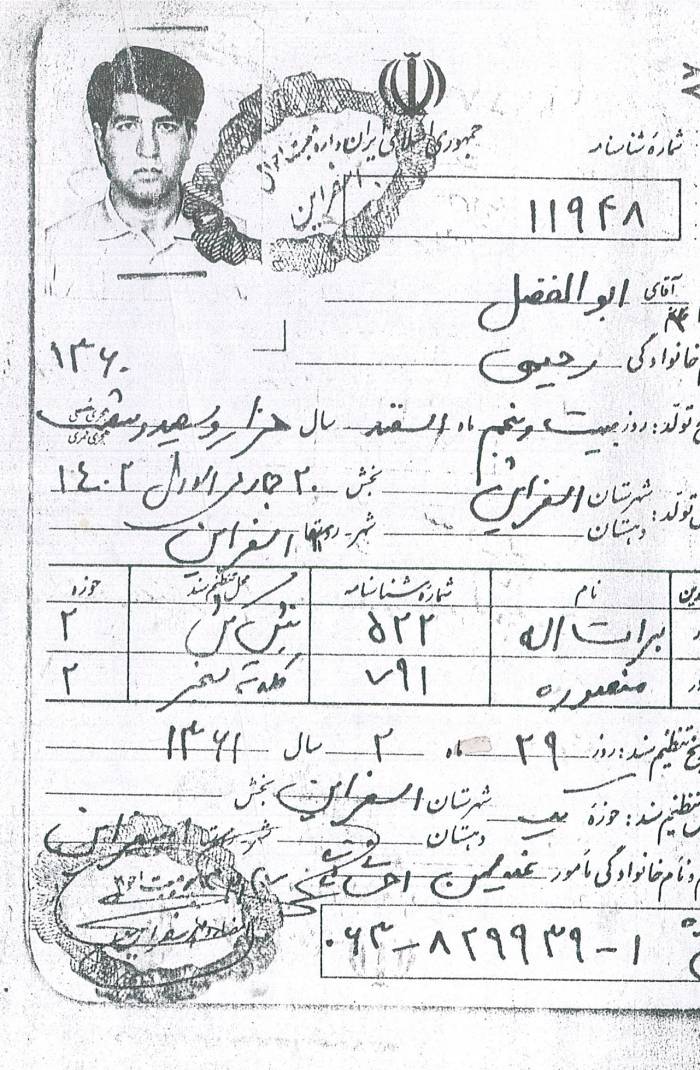 ۸۷
جمهوری اسلامی ایران
اداره ثبت احوال
اسفراین
شماره شناسنامه
۱۱۹۴۸
آقای ابوالفضل
خانوادگی رحیمی
۱۳۶۰
تولد: روز بیست و پنجم ماه اسفند سال هزار و سیصد و شصت
هجری شمسی
هجری قمری
۲۰ جمادی الاول ۱۴۰۲
تولد: شهرستان اسفراین بخش
دهستان شهر-روستا اسفراین
نام شماره شناسنامه محل تنظیم سند حوزه
برات اله ۵۲۲ ۲
منصوره ۷۹۱ ۲
تنظیم سند: روز ۲۹ ماه ۲ سال ۱۳۶۱
تنظیم سند: حوزه یک شهرستان اسفراین بخش
دهستان اسفراین
نام خانوادگی مأمور
۰۶۳-۸۲۹۹۳۹-۱